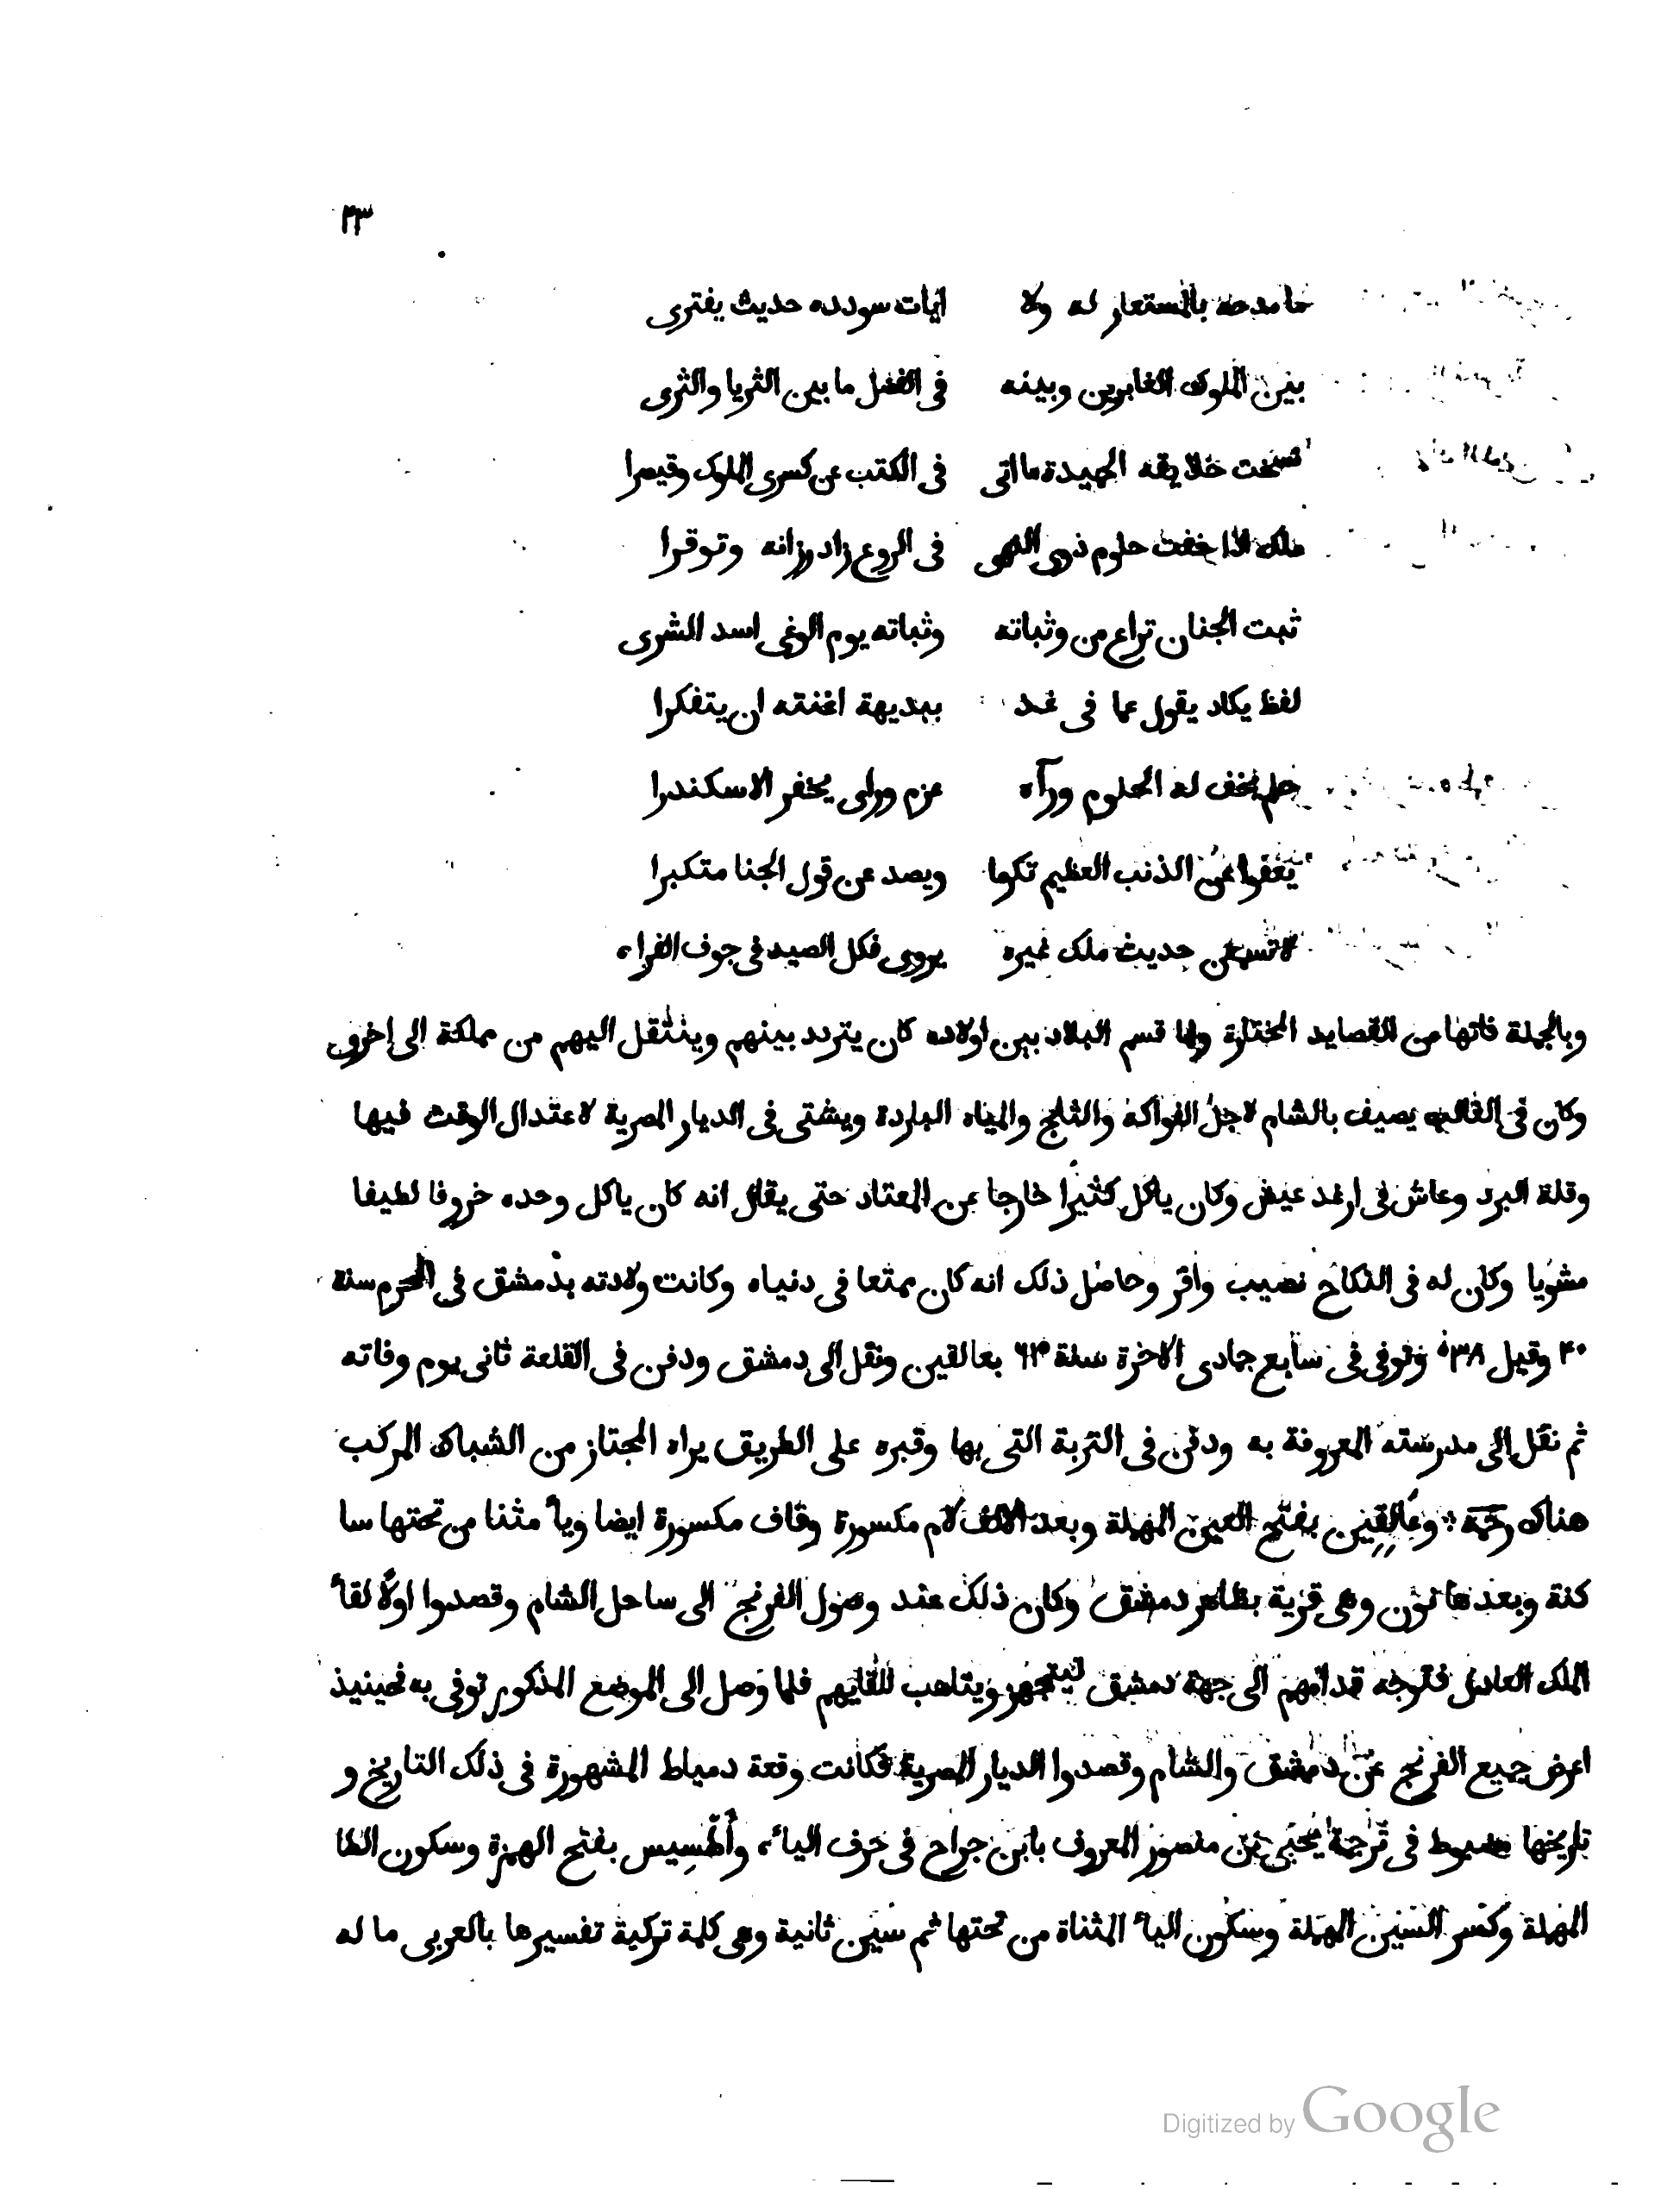 ٢٣
ما مدحه بالمستعار له ولا ايات سودده حديث يفترى
بين الملوك الغابرين وبينه فى الفضل ما بين الثريا والثرى
نسخت خلايقه الحميدة ما اتى فى الكتب عن كسرى الملوك وقيصرا
ملك اذا خفت حلوم ذوى النهى فى الروع زاد رزانه وتوقرا
ثبت الجنان تراع من وثباته وثباته يوم الوغى اسد الشرى
لفظ يكاد يقول عما فى غد ببديهة اغنته ان يتفكرا
حلم تخف له الحلوم ورآه عزم وراى يحقر الاسكندرا
يعفوا عن الذنب العظيم تكرما ويصد عن قول الخنا متكبرا
لا تسمعن حديث ملك غيره يروى فكل الصيد فى جوف الفراء
وبالجملة فانها من القصايد المختارة ولما قسم البلاد بين اولاده كان يتردد بينهم وينتقل اليهم من مملكة الى اخرى
وكان فى الغالب يصيف بالشام لاجل الفواكه والثلج والمياه الباردة ويشتى فى الديار المصرية لاعتدال الوقت فيها
وقلة البرد وعاش فى ارغد عيش وكان ياكل كثيرا خارجا عن المعتاد حتى يقال انه كان ياكل وحده خروفا لطيفا
مشويا وكان له فى النكاح نصيب وافر وحاصل ذلك انه كان ممتعا فى دنياه وكانت ولادته بدمشق فى المحرم سنة
٥٤٠ وقيل ٥٣٨ وتوفى فى سابع جمادى الاخرة سنة بعالقين ونقل الى دمشق ودفن فى القلعة ثانى يوم وفاته
ثم نقل الى مدرسته المعروفة به ودفن فى التربة التى بها وقبره على الطريق يراه المجتاز من الشباك المركب
هناك رحمه وعَالِقِين بفتح العين المهملة وبعد الالف لام مكسورة وقاف مكسورة ايضا وياٌ مثنا من تحتها سا
كنة وبعدها نون وهى قرية بظاهر دمشق وكان ذلك عند وصول الفرنج الى ساحل الشام وقصدوا اولًا لقاٌ
الملك العادل فتوجه قدامهم الى جهة دمشق ليتجهز ويتاهب للقايهم فلما وصل الى الموضع المذكور توفى به فحينيذ
اعرض جميع الفرنج عن دمشق والشام وقصدوا الديار المصرية فكانت وقعة دمياط المشهورة فى ذلك التاريخ و
تاريخها مضبوط فى ترجمة يحيى بن منصور المعروف بابن جراح فى حرف الياء، وأَطْسِيس بفتح الهمزة وسكون الطا
المهملة وكسر السين المهملة وسكون الياٌ المثناة من تحتها ثم سين ثانية وهى كلمة تركية تفسيرها بالعربى ما له
Digitized by Google